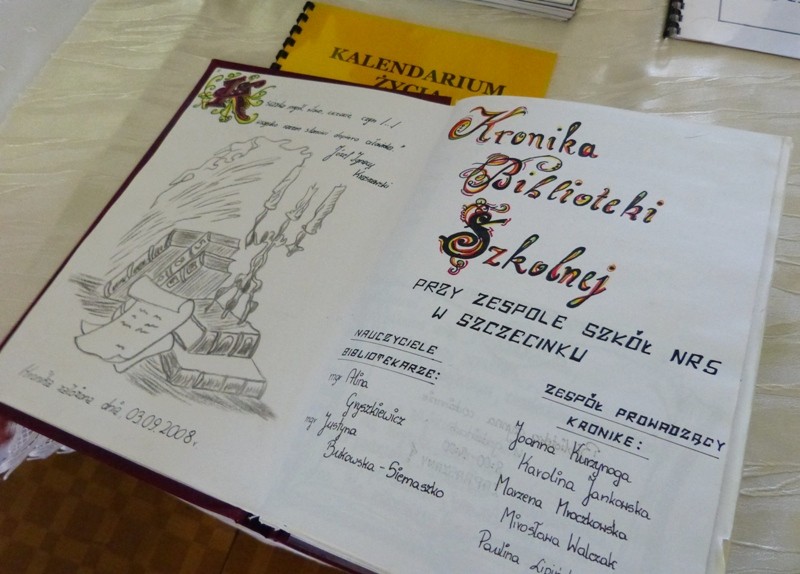 KALENDARIUM
ŻYCIA
Józef Ignacy
Kraszewski
Kronika założona dnia 03.09.2008r.
Kronika
Biblioteki
Szkolnej
PRZY ZESPOLE SZKÓŁ NR5
W SZCZECINKU
NAUCZYCIELE
BIBLIOTEKARZE:
mgr Alina
Gryszkiewicz
mgr Justyna
Bukowska-Siemaszko
ZESPÓŁ PROWADZĄCY
KRONIKE:
Joanna Kurzynoga
Karolina Jankowska
Marzena Mroczkowska
Mirosława Walczak
Paulina